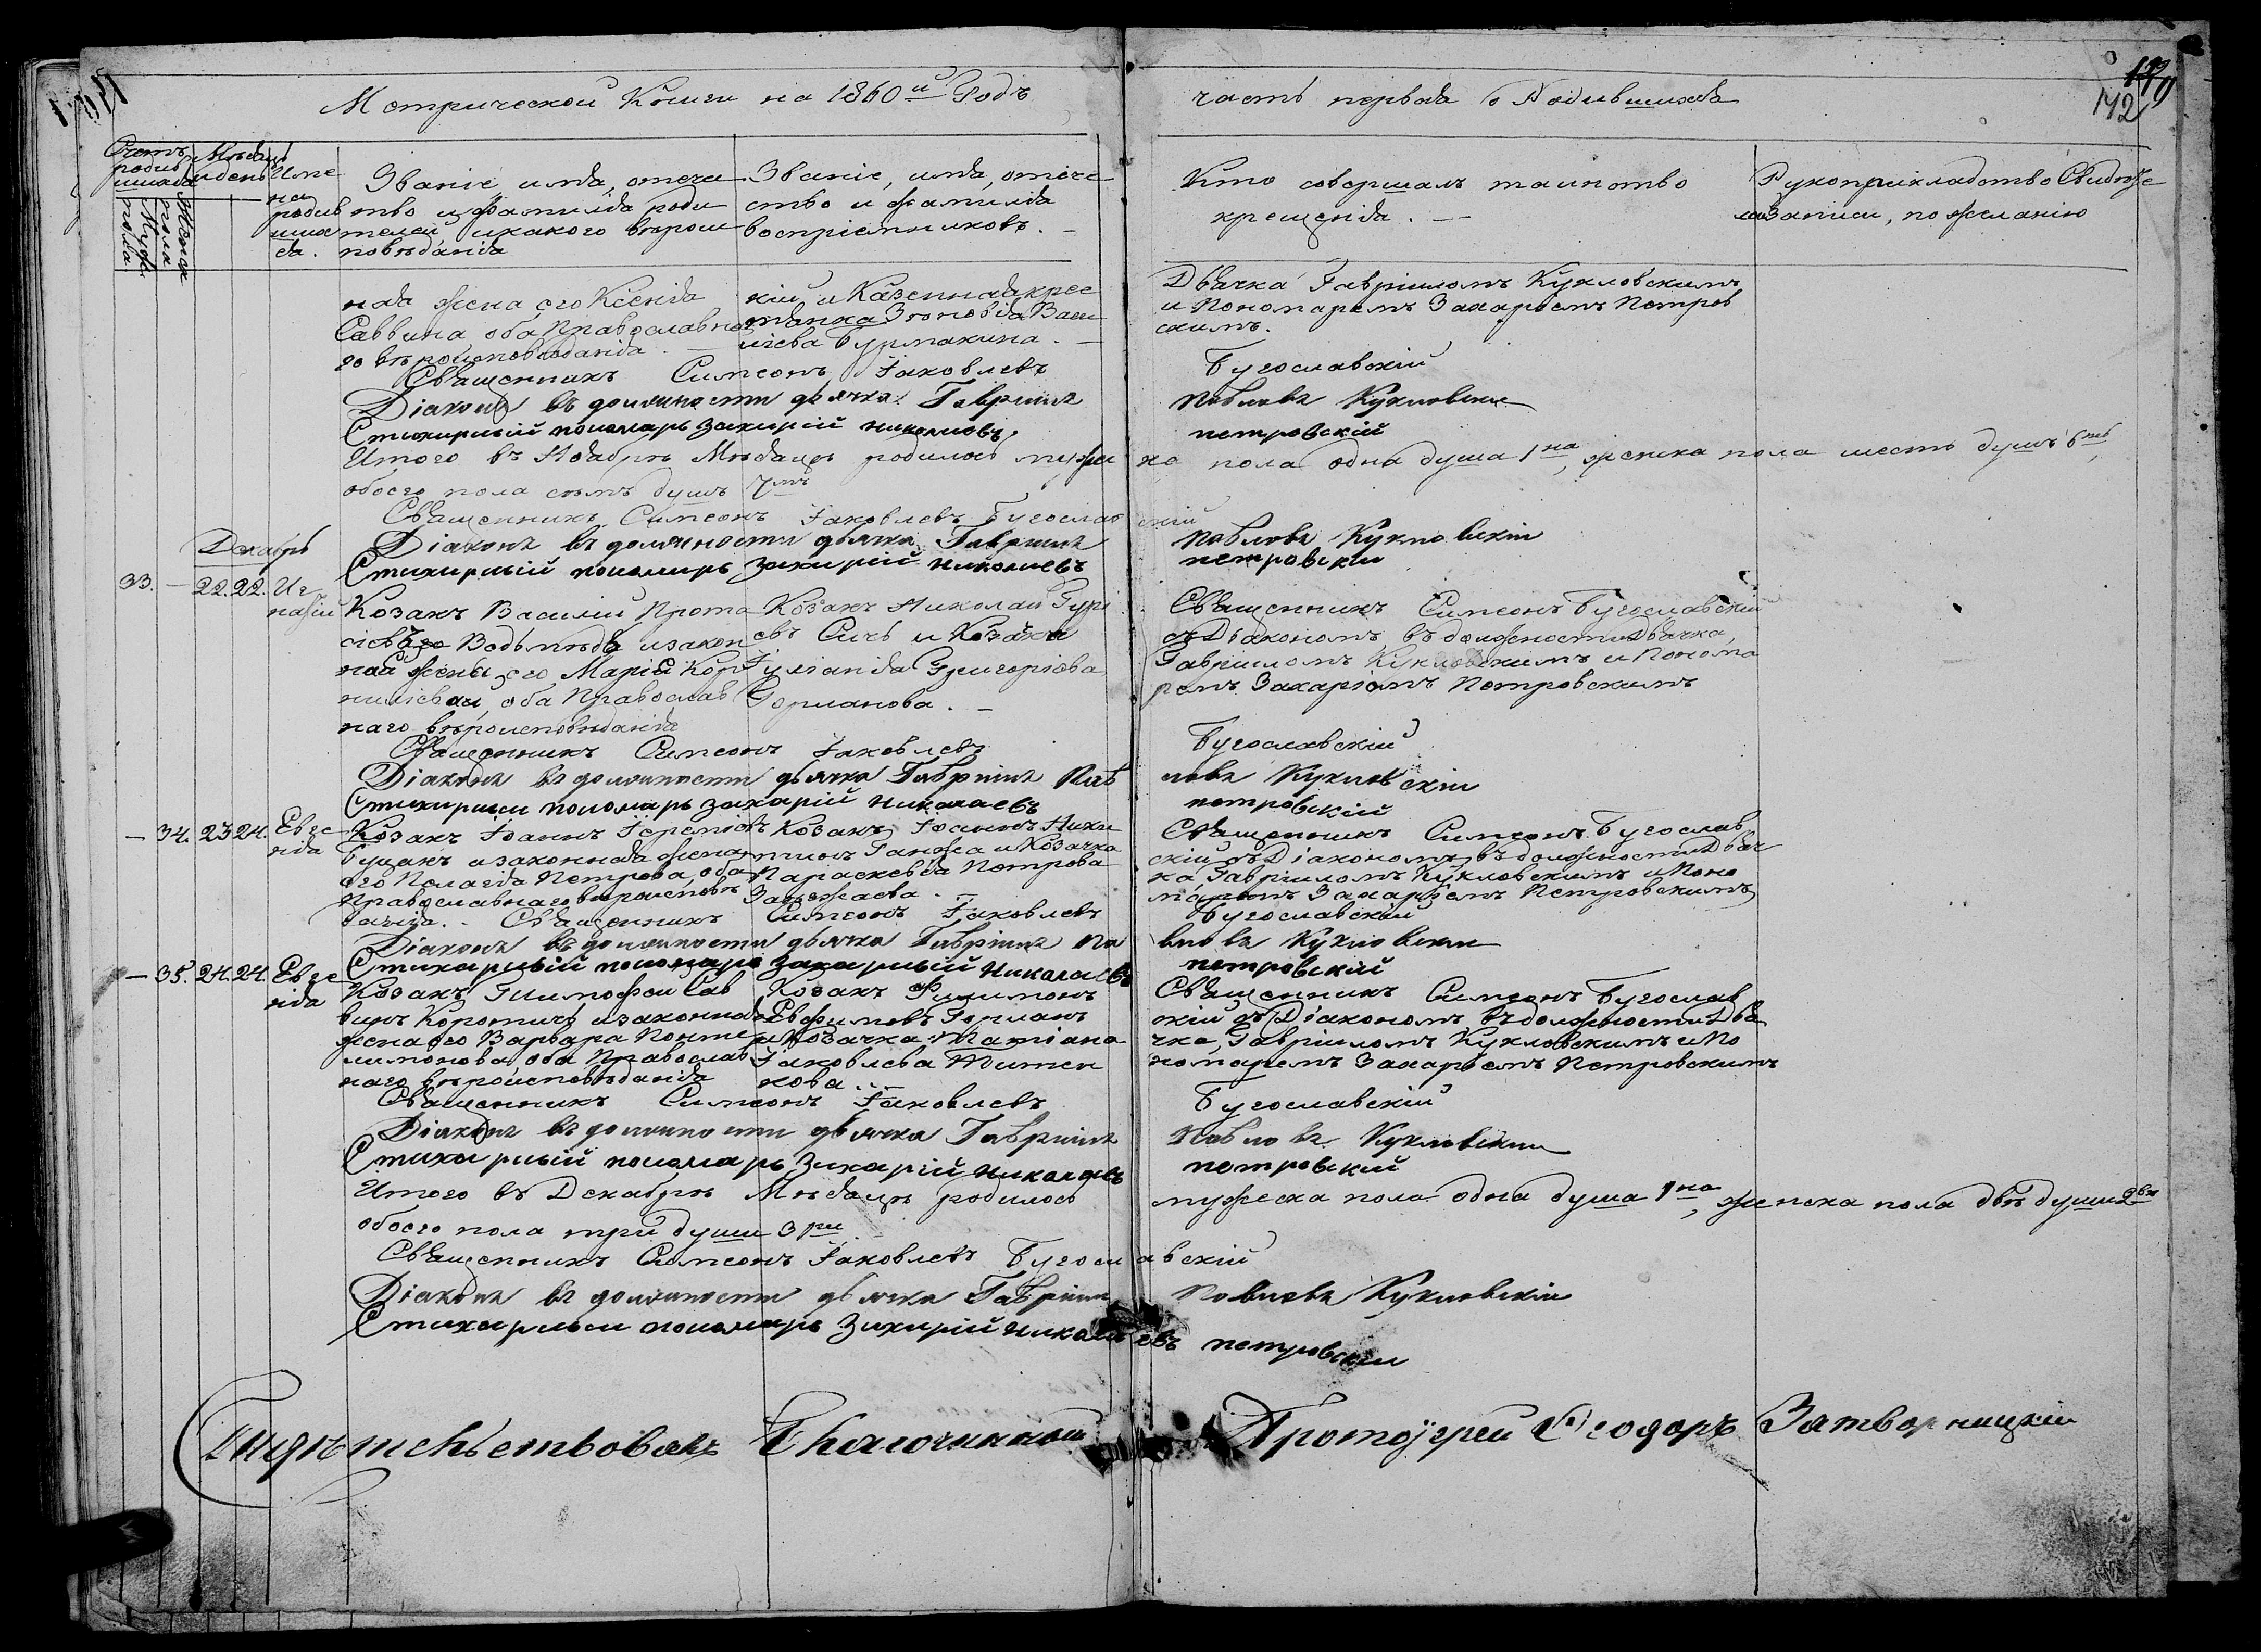 Метрической Книги на 1860й Годъ
часть первая о Родившихся
142
Счетъ родив шихся
Мужс. пола
Женск. пола
Мѣсяцъ и день
Име на родив шихся.
Званіе, имя, отече ство и фамилія роди телей и какого вѣроис повѣданія
Званіе, имя, отече ство и фамилія воспріемниковъ. —
Кто совершалъ таинство крещенія. —
Рукоприкладство Свидѣте лей Записи, по желанію
ная жена его Ксенія
Саввина оба Православна
го вѣроисповѣданія. —
кій и Казенная крес
тьянка Зиновія Васи
лиева Бурмакина. —
Дьячка Гавріиломъ Кукловскимъ
и Пономаремъ Захаріемъ Петров
скимъ.
Священникъ Симеонъ Іаковлевъ Бугославскій
Діаконъ въ должности дьячка Гавріилъ Павловъ Кукловскій
Стихирный пономарь Захарій Николаевъ Петровскій
Итого въ Ноябрѣ Мѣсяцѣ родилось мужес ка пола одна душа 1на, женска пола шесть душъ 6ть,
обоего пола семь душъ 7мь
Священникъ Симеонъ Іаковлевъ Бугослав скій
Діаконъ въ должности дьячка Гавріилъ Павловъ Кукловскій
Стихирный пономарь Захарій Николаевъ Петровскій
Декабрь
33. — 22. 22. Иг натій
Козакъ Василій Прота
сіевъ Водьмѣдь и закон
ной жены его Маріи Кор
ниліевой, оба Православ
наго вѣроисповѣданія
Козакъ Николай Гурі
евъ Сичь и Козачка
Іуліанія Григоріева
Горманова. —
Священникъ Симеонъ Бугославскій
съ Діакономъ въ должности Дьячка,
Гавріиломъ Кукловскимъ и Понома
ремъ Захаріемъ Петровскимъ
Священникъ Симеонъ Іаковлевъ Бугославскій
Діаконъ въ должности дьячка Гавріилъ Пав ловъ Кукловскій
Стихирный пономарь Захарій Николаевъ Петровскій
— 34. 23 24. Евге нія
Козакъ Іоаннъ Іереміевъ
Буцакъ и законная жена
его Пелагія Петрова, оба
Православнаго вѣроисповѣ
данія. —
Козакъ Іоаннъ Ники
тинъ Ганжа и Козачка
Параскевія Петрова
Священникъ Симеонъ Бугослав
скій съ Діакономъ въ должности Дьяч
ка Гавріиломъ Кукловскимъ и Поно
маремъ Захаріемъ Петровскимъ
Священникъ Симеонъ Іаковлевъ Бугославскій
Діаконъ въ должности дьячка Гавріилъ Па вловъ Кукловскій
Стихарный пономарь Захарный Николаевъ Петровскій
— 35. 24. 24. Евге нія
Козакъ Тимофей Сав
винъ Коротичь и законная
жена его Варвара Панте
лимонова оба Православ
наго вѣроисповѣданія
Козакъ Филимонъ
Евфимовъ Горманъ
и Козачка Татіана
Іаковлева Титен
кова. —
Священникъ Симеонъ Бугослав
скій съ Діакономъ въ должности Дья
чка, Гавріиломъ Кукловскимъ и По
номаремъ Захаріемъ Петровскимъ
Священникъ Симеонъ Іаковлевъ Бугославскій
Діаконъ въ должности дьячка Гавріилъ Павловъ Кукловскій
Стихарный пономарь Захарій Николаевъ Петровскій
Итого въ Декабрѣ Мѣсяцѣ родилось мужеска пола одна душа 1на, женска пола двѣ души 2вѣ
обоего пола три души 3ри
Священникъ Симеонъ Іаковлевъ Бугосл авскій
Діаконъ въ должности дьячка Гавріилъ Павловъ Кукловскій
Стихарный пономарь Захарій Николаевъ Петровскій
Свидѣтельствовалъ Благочинный Протоіерей Ѳеодоръ Затворницкій